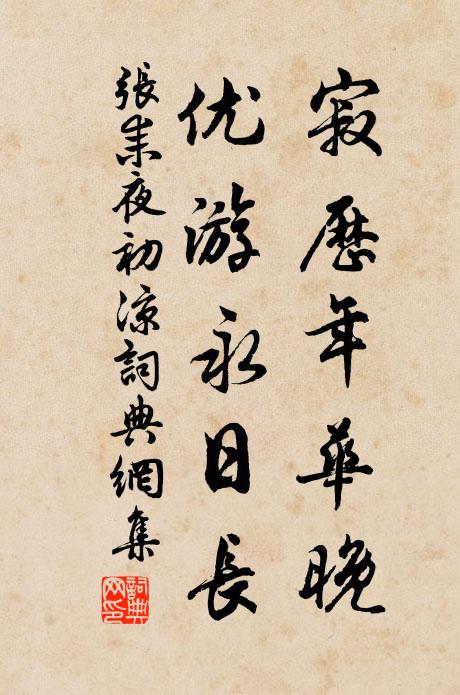 寂歷年華晚
优游永日長
張耒夜初涼詞典網集
詞典網印